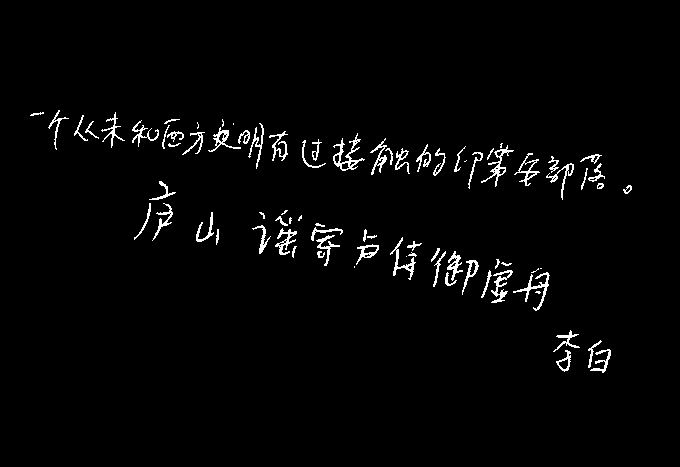 一个从未和西方文明有过接触的印第安部落。
庐山谣寄卢侍御虚舟
李白